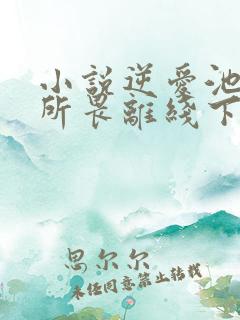 小説逆愛池
所畏離綫下
思尔尔
未经同意禁止转载